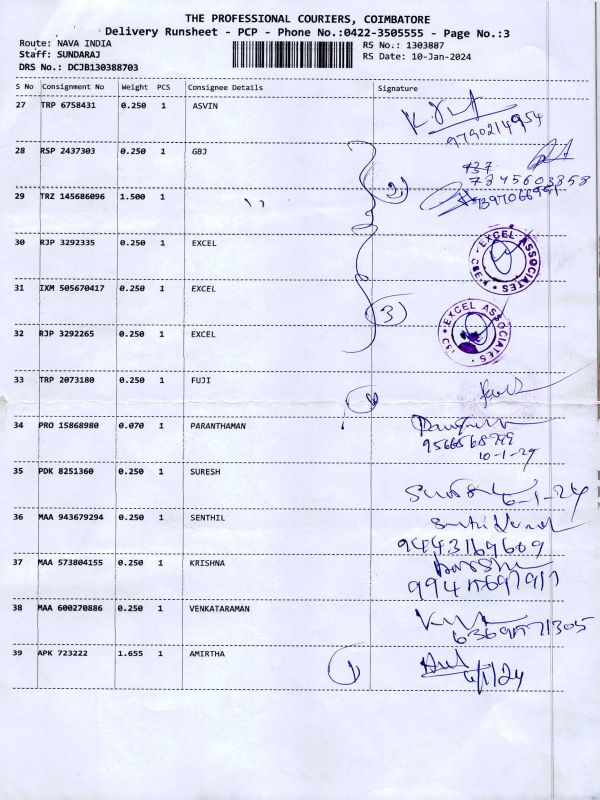 THE PROFESSIONAL COURIERS, COIMBATORE
Delivery Runsheet - PCP - Phone No.:0422-3505555 - Page No.:3
Route: NAVA INDIA
RS No.: 1303887
Staff: SUNDARAJ
RS Date: 10-Jan-2024
DRS No.: DCJB130388703
S No Consignment No Weight PCS Consignee Details Signature
27 TRP 6758431 0.250 1 ASVIN
9790214954
28 RSP 2437303 0.250 1 GBJ
7845603858
29 TRZ 145686096 1.500 1 ,,
2)
30 RJP 3292335 0.250 1 EXCEL
EXCEL ASSOCIATES
31 IXM 505670417 0.250 1 EXCEL
3)
EXCEL ASSOCIATES
32 RJP 3292265 0.250 1 EXCEL
33 TRP 2073180 0.250 1 FUJI
34 PRO 15868980 0.070 1 PARANTHAMAN
10-1-24
35 PDK 8251360 0.250 1 SURESH
36 MAA 943679294 0.250 1 SENTHIL
9443169609
37 MAA 573804155 0.250 1 KRISHNA
38 MAA 600270886 0.250 1 VENKATARAMAN
39 APK 723222 1.655 1 AMIRTHA
1)